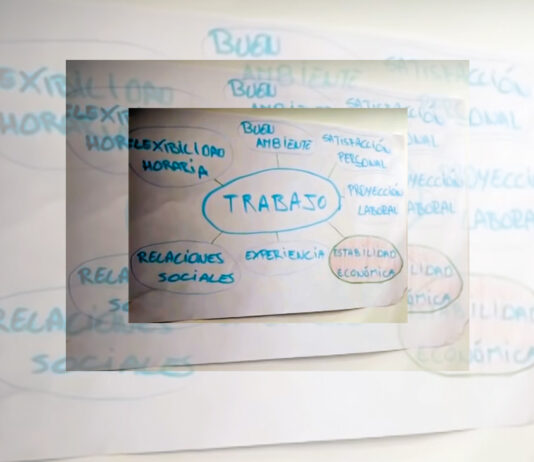 BUEN
AMBIENTE
FLEXIBILIDAD
HORARIA
SATISFACCIÓN
PERSONAL
TRABAJO
PROYECCIÓN
LABORAL
RELACIONES
SOCIALES
EXPERIENCIA
ESTABILIDAD
ECONÓMICA